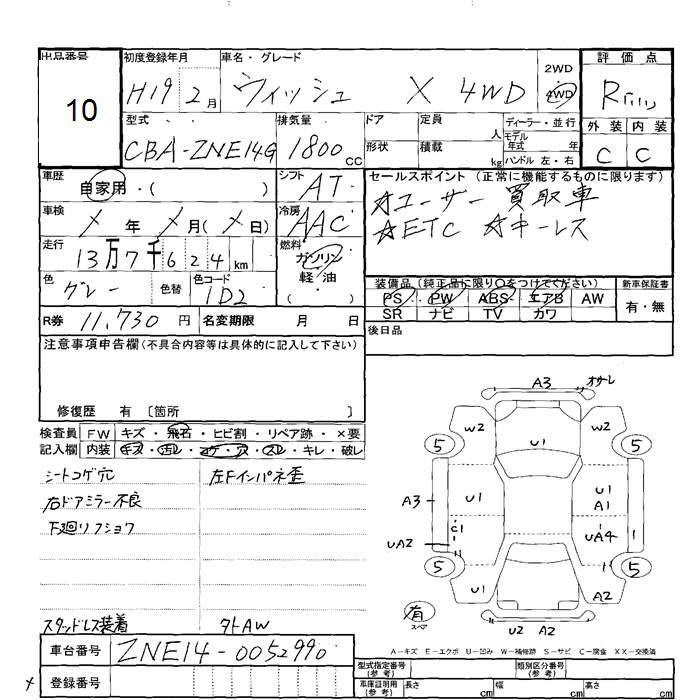 出品番号 初度登録年月 車名・グレード 2WD 4WD 評価点
10 H19 2月 ウィッシュ X 4WD R
型式 排気量 ドア 定員 人 ディーラー・並行 外装 内装
CBA-ZNE14G 1800cc 形状 積載 kg モデル年式 年 ハンドル 左・右 C C
車歴 自家用・( ) シフト AT セールスポイント (正常に機能するものに限ります)
☆ユーザー買取車
車検 × 年 × 月(× 日) 冷房 AAC ☆ETC ☆キーレス
走行 13万7千624km 燃料 ガソリン 軽・油 ( )
色 グレー 色替 色コード 1D2 装備品(純正品に限り○をつけてください) 新車保証書
PS PW ABS エアB AW 有・無
SR ナビ TV カワ
R券 11,730円 名変期限 月 日 後日品
注意事項申告欄(不具合内容等は具体的に記入して下さい)
修復歴 有 〔箇所 〕
検査員 FW キズ・飛石・ヒビ割・リペア跡・×要
記入欄 内装 キズ・汚レ・コゲ・穴・スレ・キレ・破レ
シートコゲ穴 左Fインパネ歪
右ドアミラー不良
下廻リフショク
スタッドレス装着 タトAW
A3 オサレ
W2 W2
5 U1 5
A3 U1 U1 A1
C1 UA4
UA2
5 5
U1 A2
有 スペア
U2 A2
A-キズ E-エクボ U-凹み W-補修跡 S-サビ C-腐食 XX-交換済
車台番号 ZNE14-0052990 型式指定番号(参考) 類別区分番号(参考)
登録番号 車庫証明用(参考) 長さ cm 幅 cm 高さ cm